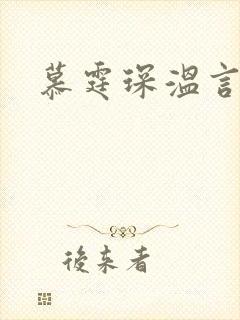 慕霆琛温言
後来者